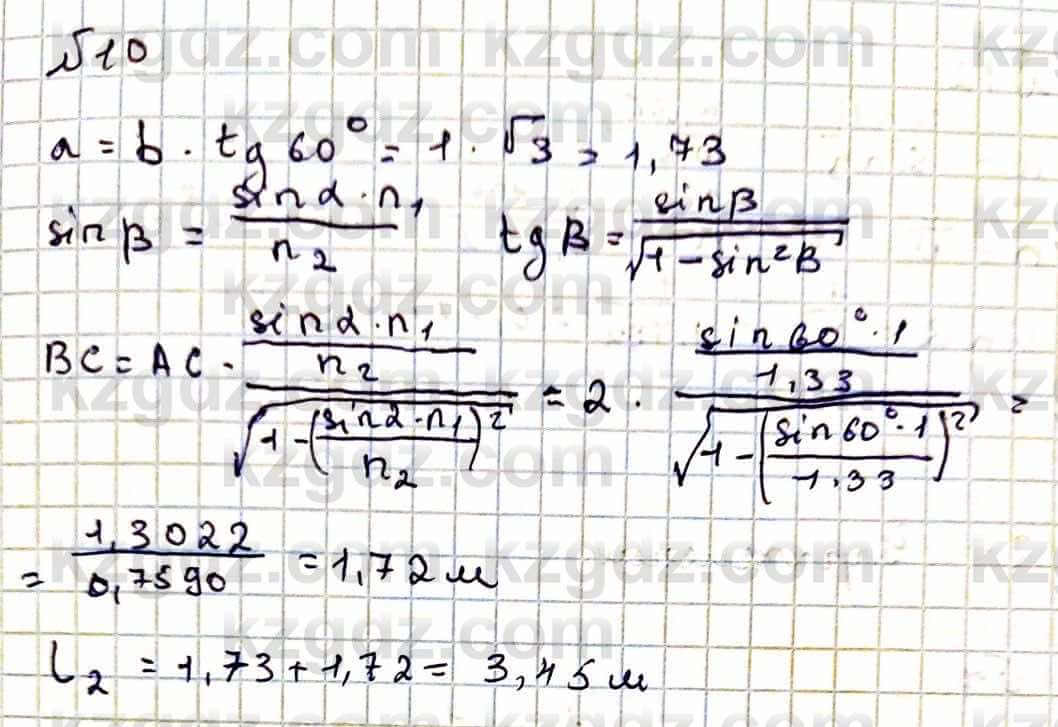 √10
a = b · tg 60° = 1 · √3 = 1,73
sin β = (sin α · n₁)/n₂   tg β = sin β/√(1 - sin² β)
BC = AC · ((sin α · n₁)/n₂)/√(1 - ((sin α · n₁)/n₂)²) = 2 · ((sin 60° · 1)/1,33)/√(1 - ((sin 60° · 1)/1,33)²) =
= 1,3022/0,7590 = 1,72 м
L₂ = 1,73 + 1,72 = 3,45 м
kzgdz.com